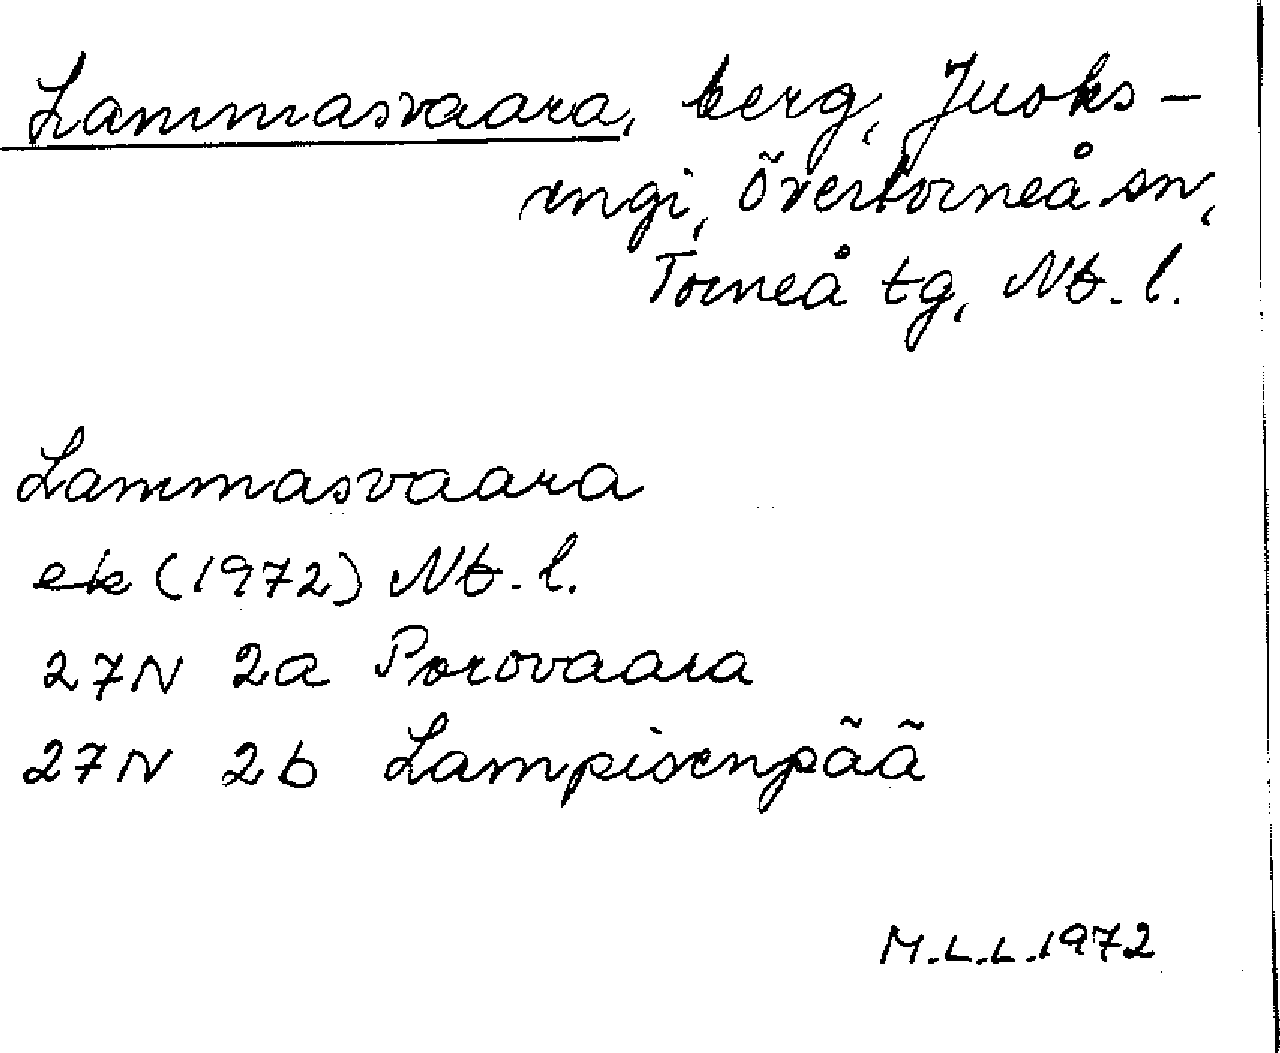 Lammasvaara, berg, Juoks-
engi, Övertorneå sn,
Torneå tg, Nb. l.
Lammasvaara
ek (1972) Nb. l.
27N 2a Porovaara
27N 2b Lampisenpää
M.L.L. 1972